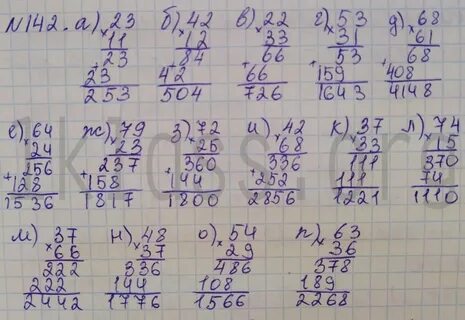 №142. а) 23 б) 42 в) 22 г) 53 д) 68
×11 ×12 ×33 ×31 ×61
23 84 66 53 68
+23 42 +66 +159 +408
253 504 726 1643 4148
е) 64 ж) 79 з) 72 и) 42 к) 37 л) 74
×24 ×23 ×25 ×68 ×33 ×15
256 237 360 336 111 370
+128 +158 +144 +252 111 74
1536 1817 1800 2856 1221 1110
м) 37 н) 48 о) 54 п) 63
×66 ×37 ×29 ×36
222 336 486 378
222 144 108 189
2442 1776 1566 2268